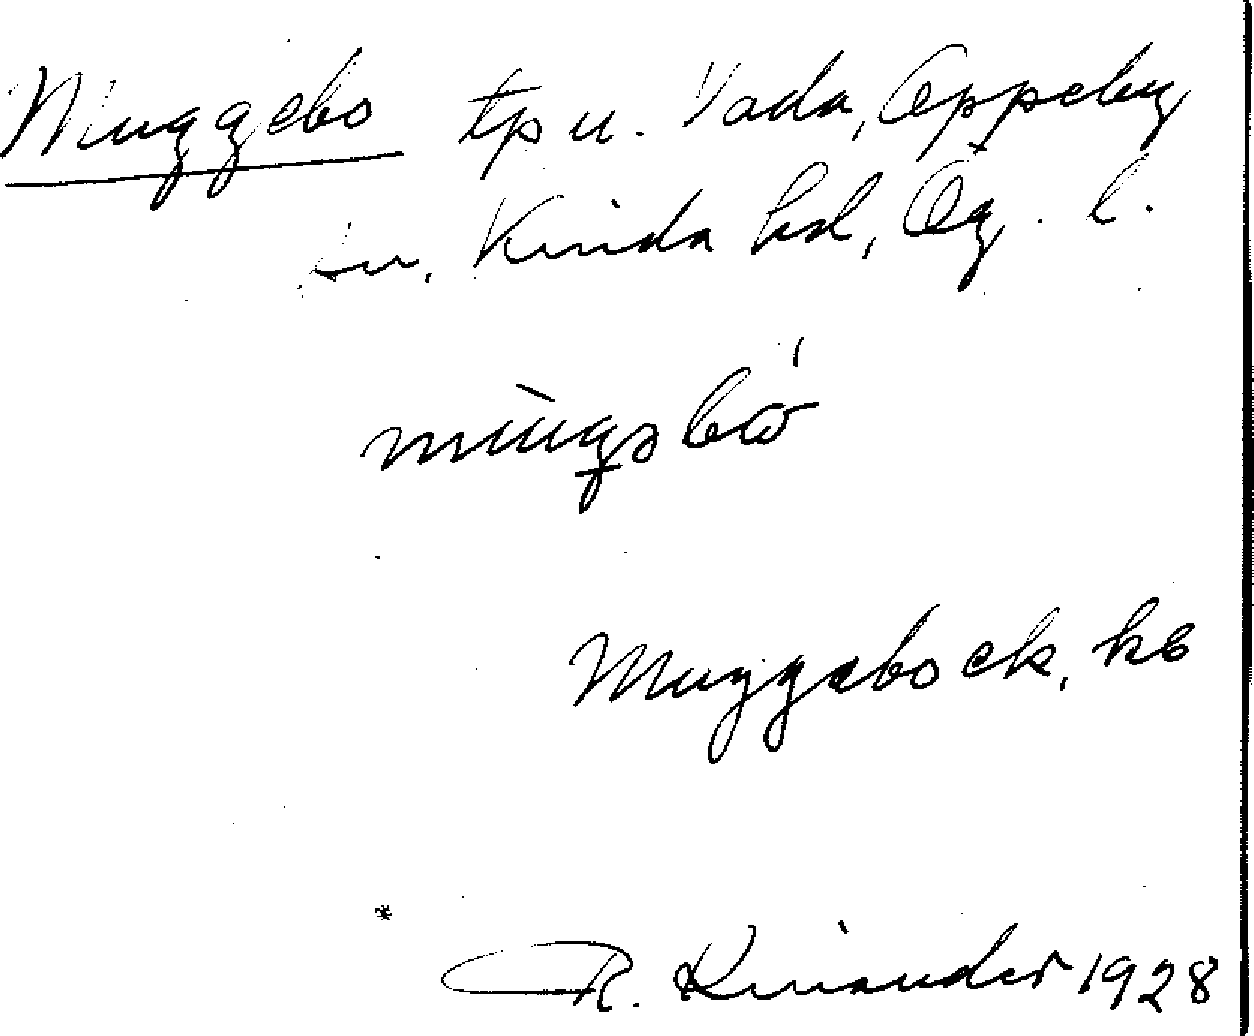 Muggebo tp u. Vada, Oppeby
sn, Kinda hd, Ög. l.
Muggebo ek, kb
R. Kinander 1928